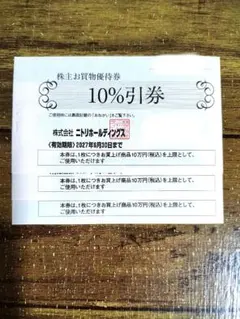 株主お買物優待券
10%引券
ご使用前には裏面記載の「おねがい」をご覧下さい。
株式会社 ニトリホールディングス
〈有効期限〉2027年6月30日まで
本券は、1枚につきお買上げ商品10万円(税込)を上限として、
ご使用いただけます
本券は、1枚につきお買上げ商品10万円(税込)を上限として、
ご使用いただけます
本券は、1枚につきお買上げ商品10万円(税込)を上限として、
ご使用いただけます